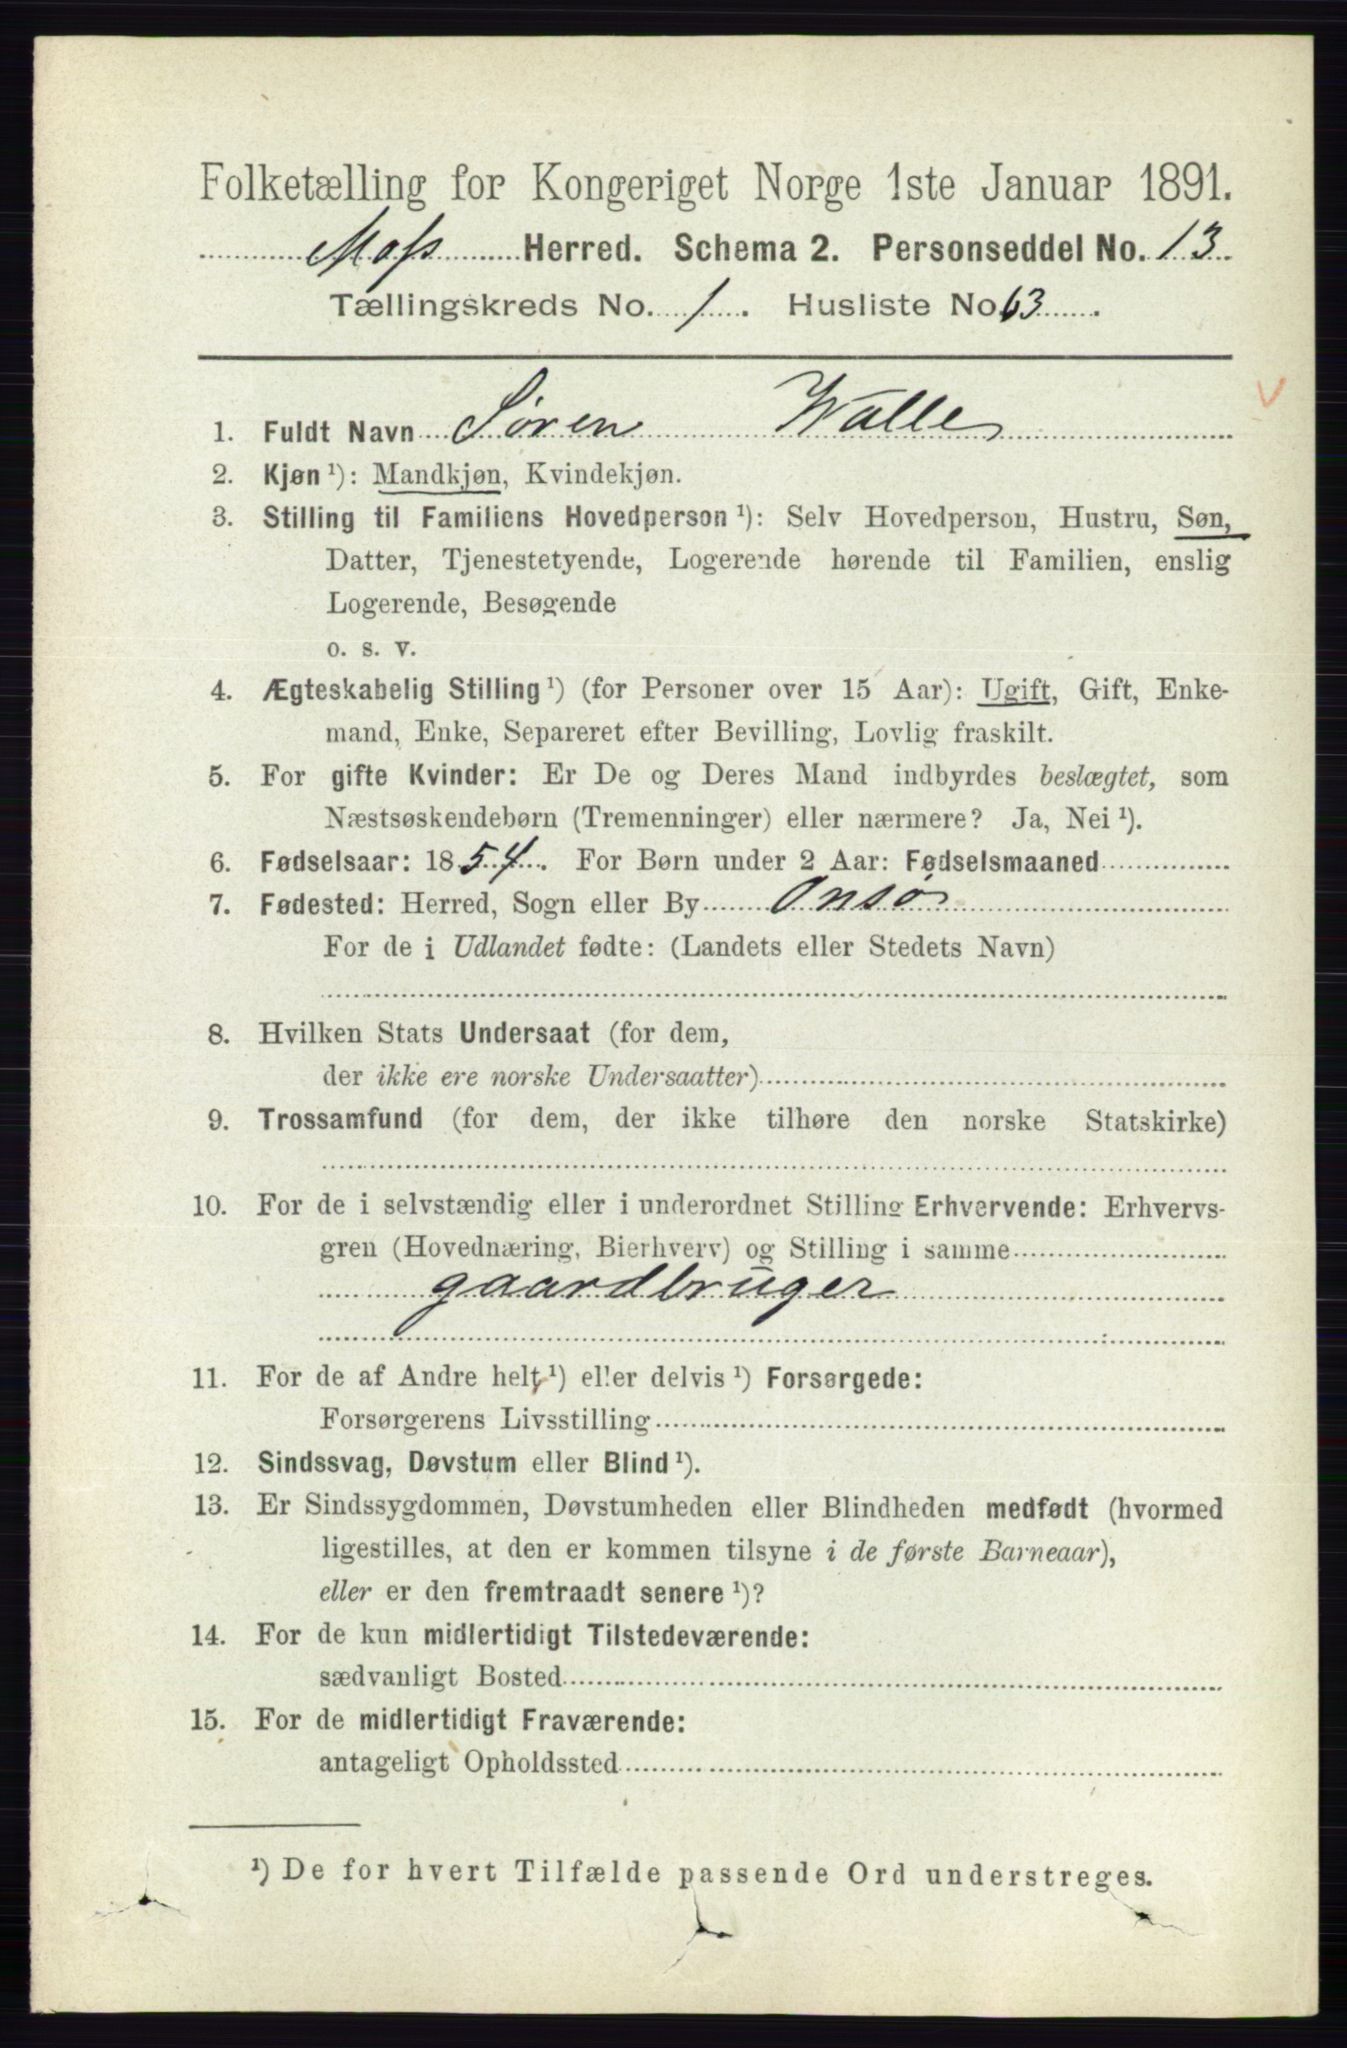 Folketælling for Kongeriget Norge 1ste Januar 1891.
Moss Herred. Schema 2. Personseddel No. 13
Tællingskreds No. 1. Husliste No. 63.
1. Fuldt Navn Søren Walle
2. Kjøn ¹): Mandkjøn, Kvindekjøn.
3. Stilling til Familiens Hovedperson ¹): Selv Hovedperson, Hustru, Søn,
Datter, Tjenestetyende, Logerende hørende til Familien, enslig
Logerende, Besøgende
o. s. v.
4. Ægteskabelig Stilling ¹) (for Personer over 15 Aar): Ugift, Gift, Enke-
mand, Enke, Separeret efter Bevilling, Lovlig fraskilt.
5. For gifte Kvinder: Er De og Deres Mand indbyrdes beslægtet, som
Næstsøskendebørn (Tremenninger) eller nærmere? Ja, Nei ¹).
6. Fødselsaar: 1854. For Børn under 2 Aar: Fødselsmaaned
7. Fødested: Herred, Sogn eller By Onsø
For de i Udlandet fødte: (Landets eller Stedets Navn)
8. Hvilken Stats Undersaat (for dem,
der ikke ere norske Undersaatter)
9. Trossamfund (for dem, der ikke tilhøre den norske Statskirke)
10. For de i selvstændig eller i underordnet Stilling Erhvervende: Erhvervs-
gren (Hovednæring, Bierhverv) og Stilling i samme
gaardbruger
11. For de af Andre helt ¹) eller delvis ¹) Forsørgede:
Forsørgerens Livsstilling
12. Sindssvag, Døvstum eller Blind ¹).
13. Er Sindssygdommen, Døvstumheden eller Blindheden medfødt (hvormed
ligestilles, at den er kommen tilsyne i de første Barneaar),
eller er den fremtraadt senere ¹)?
14. For de kun midlertidigt Tilstedeværende:
sædvanligt Bosted
15. For de midlertidigt Fraværende:
antageligt Opholdssted
¹) De for hvert Tilfælde passende Ord understreges.